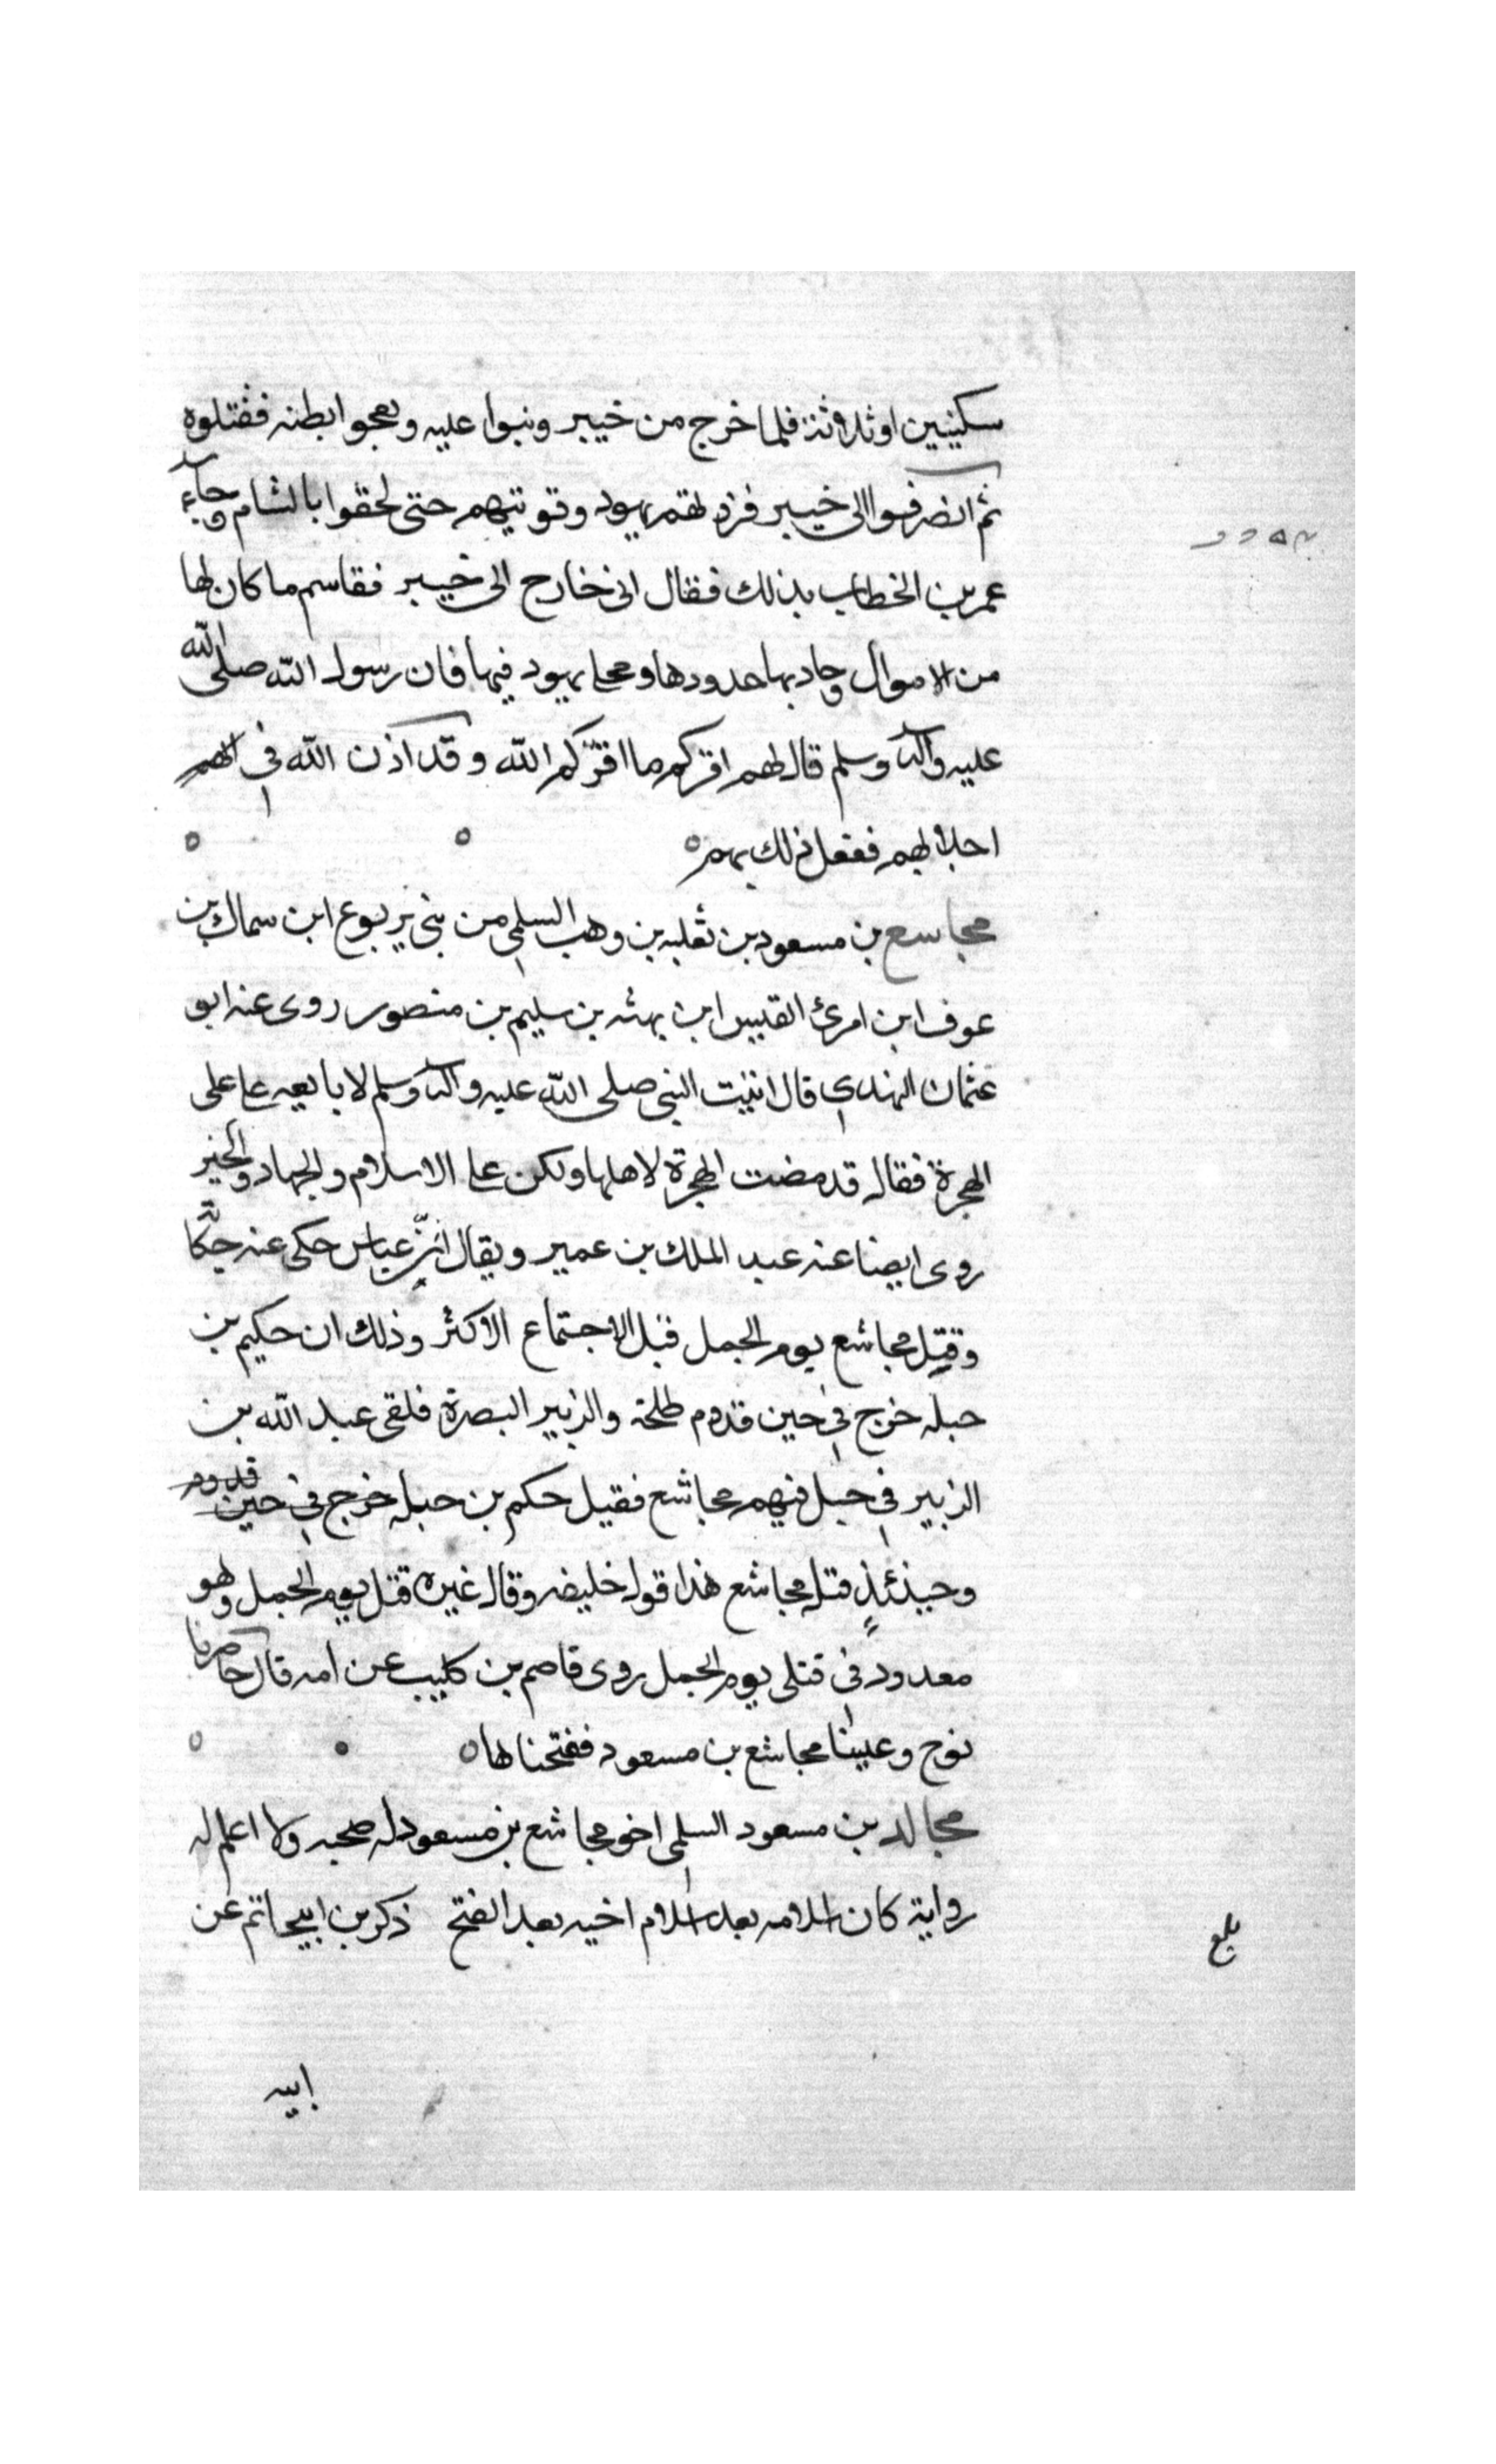 سكينين او ثلاثة فلما خرج من خيبر وثبوا عليه وبعجوا بطنه فقتلوه
ثم انصرفوا الى خيبر فزودتهم يهود وقوتهم حتى لحقوا بالشام وجاء
عمر بن الخطاب بذلك فقال انى خارج الى خيبر فقاسم ما كان لها
من الاموال وحاد بها حدودها ومجلى يهود فيها فان رسول الله صلى الله
عليه وآله وسلم قال لهم اقركم ما اقركم الله وقد اذن الله فى
اجلالهم ففعل ذلك بهم
مجاسع بن مسعود بن ثعلبه بن وهب السلمى من بنى يربوع ابن سماك بن
عوف ابن امرئ القيس ابن بهثه بن سليم بن منصور روى عنه ابو
عثمان النهدى قال اتيت النبى صلى الله عليه وآله وسلم لابايعه على
الهجرة فقال قد مضت الهجرة لاهلها ولكن على الاسلام والجهاد والخير
روى ايضا عنه عبد الملك بن عمير ويقال ان بن عباس حكى عنه
وقتل مجاشع يوم الجمل قبل الاجتماع الاكثر وذلك ان حكيم بن
حبله خرج فى حين قدوم طلحة والزبير البصرة فلقى عبد الله بن
الزبير فى خيل فيهم مجاشع فقيل حكم بن حبله خرج فى حين قدوم
وحينئذ قتل مجاشع هذا قول خليفه وقال غيره قتل يوم الجمل وهو
معدود فى قتلى يوم الجمل روى قاصم بن كليب عن امه قال حاصرنا
نوح وعلينا مجاشع بن مسعود ففتحناها
مجالد بن مسعود السلمى اخو مجاشع بن مسعود له صحبه ولا اعلم له
رواية كان اسلامه بعد اسلام اخيه بعد الفتح ذكر بن ابى حاتم عن
بلغ
ابيه